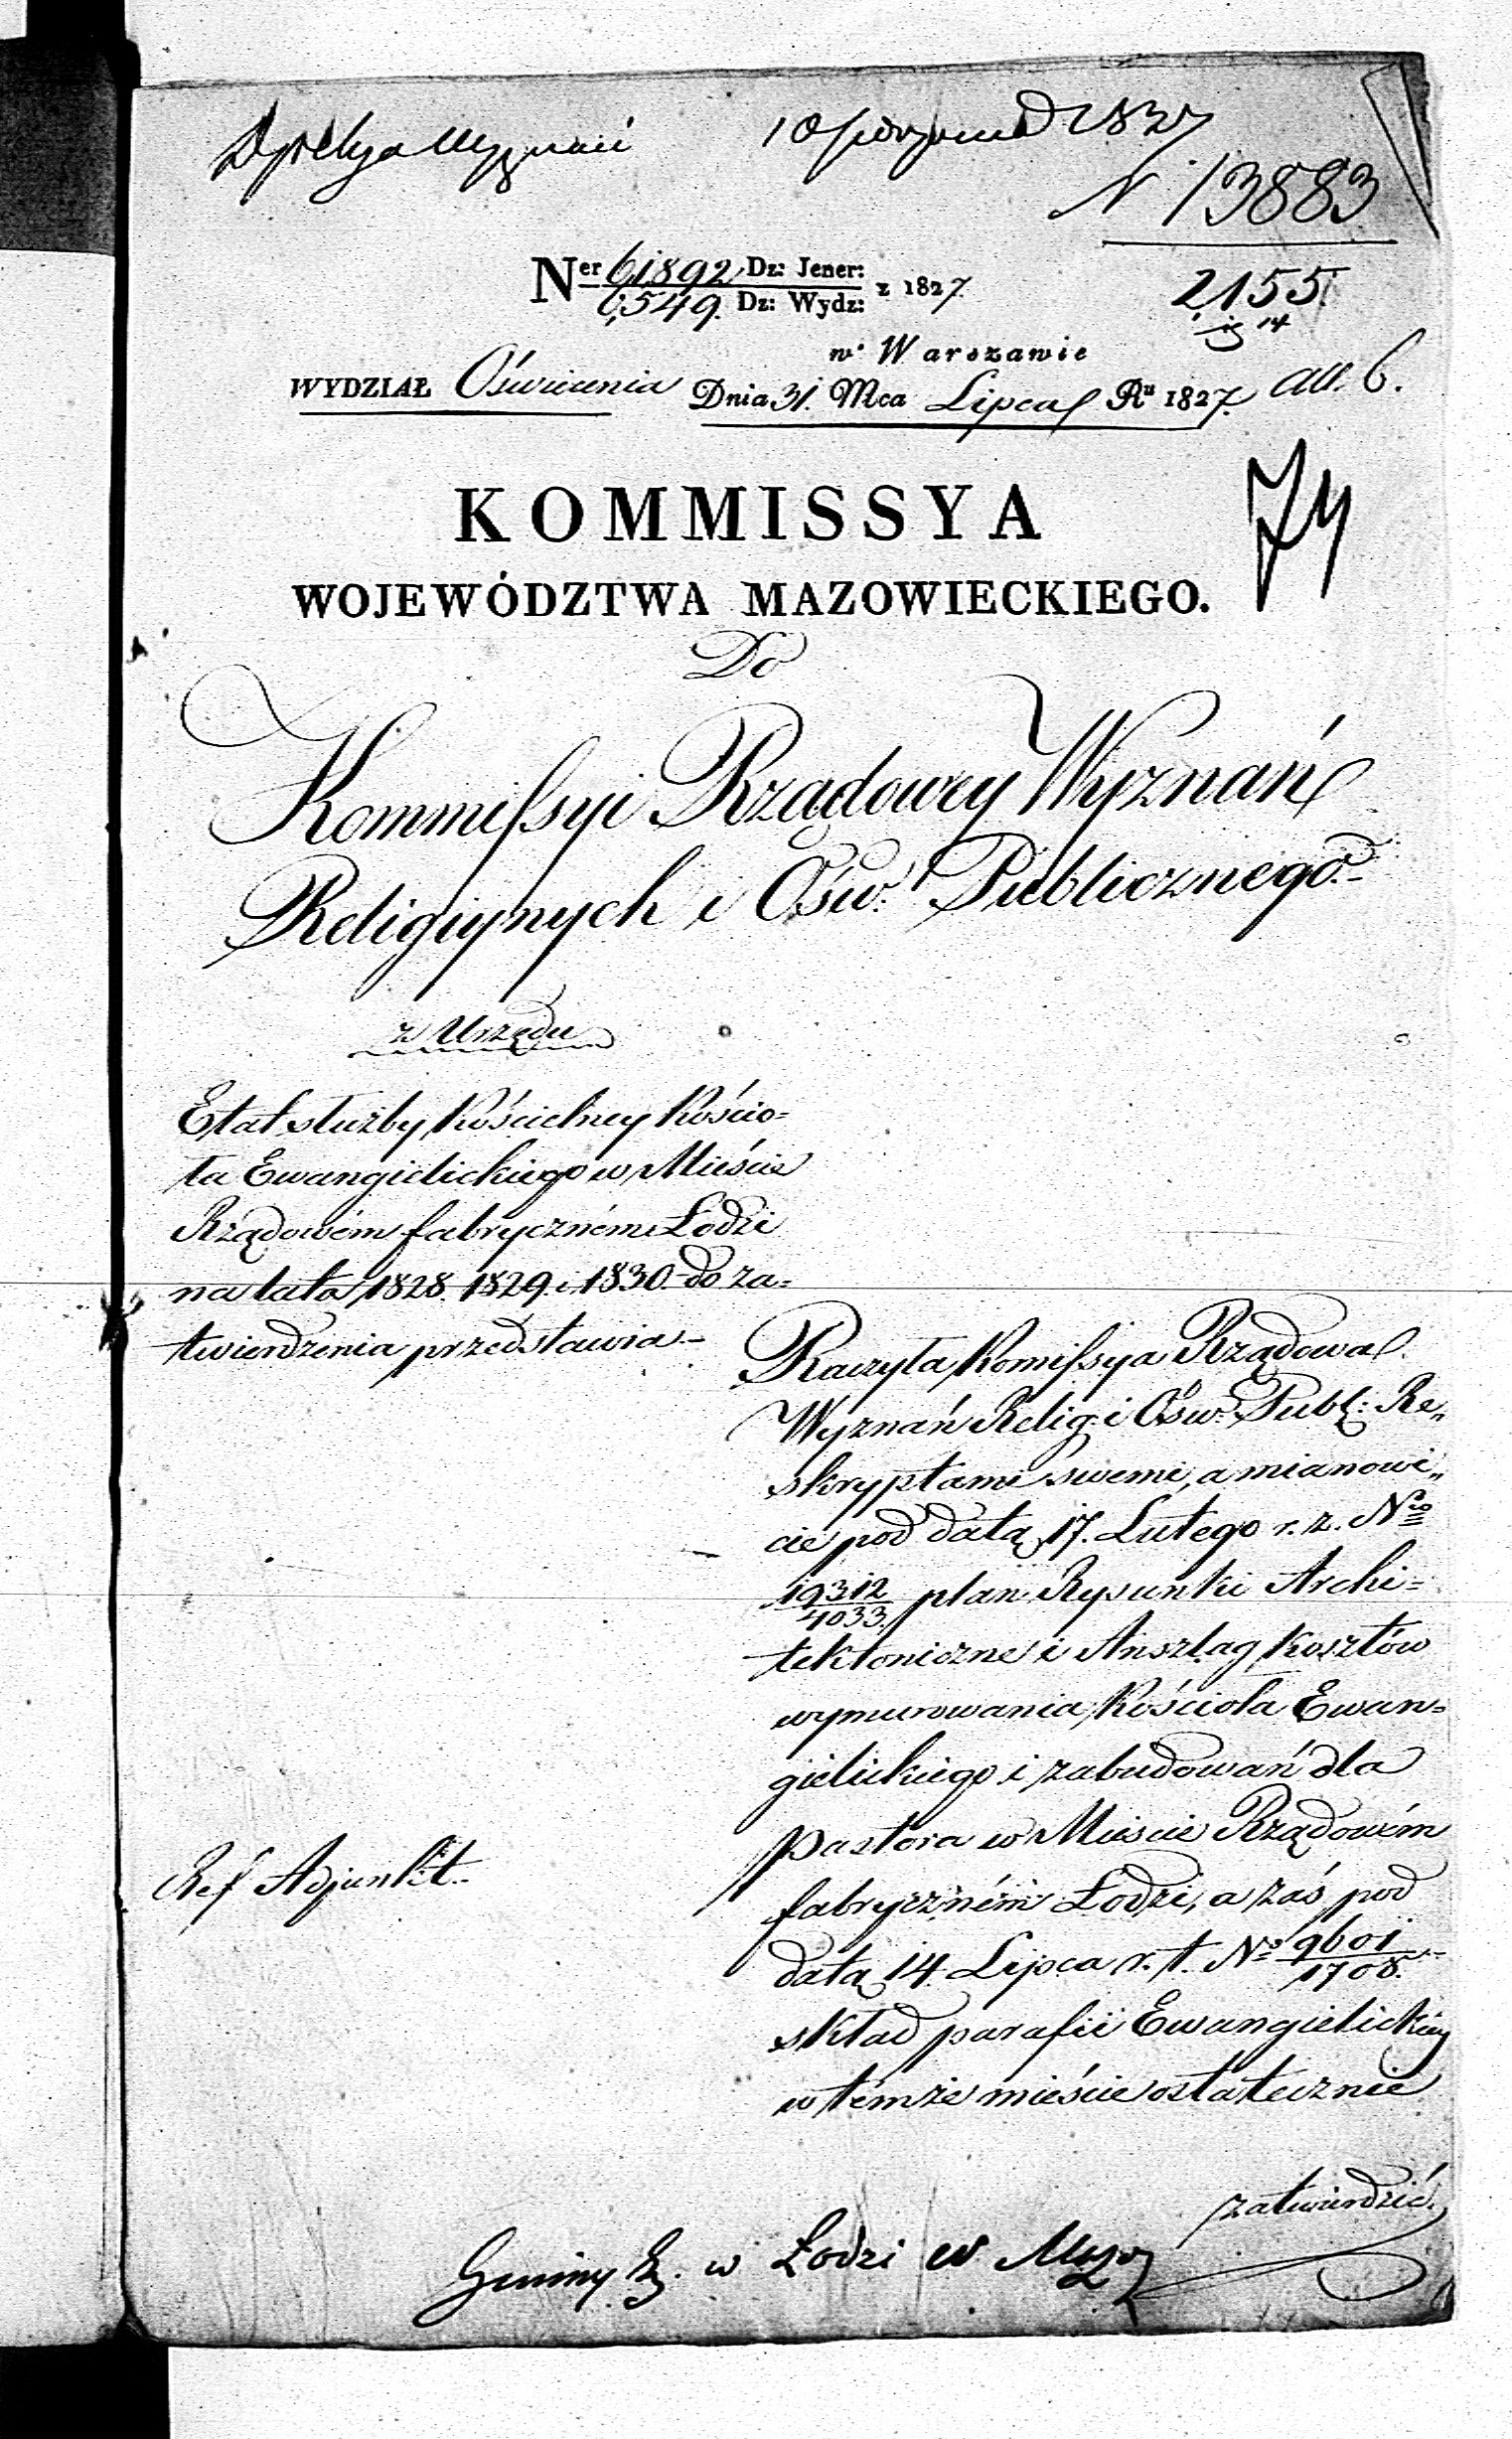 10 sierpnia 1827
N 13883
2155
N<sup>er</sup> 61892 Dz: Jener: z 1827.
6,549. Dz: Wydz:
w Warszawie
WYDZIAŁ Oświecenia Dnia 31. Mca Lipca R<sup>u</sup> 1827. all. 6.
74
KOMMISSYA
WOJEWÓDZTWA MAZOWIECKIEGO.
Do
Kommissyi Rządowey Wyznań
Religiynych i Ośw: Publicznego.
z Urzędu
Etat służby Kościelney Kościo=
ła Ewangielickiego w Mieście
Rządowém fabryczném Łodzi
na lata 1828. 1829. i 1830. do za=
twierdzenia przedstawia.
Raczyła Komissya Rządowa
Wyznań Relig: i Ośw: Publ: Re„
skryptami swemi, a mianowi„
cie pod datą 17. Lutego r. z. N<sup>ro</sup>
19312/4033. plan Rysunki Archi=
tektoniczne i Anszlag kosztów
wymurowania Kościoła Ewan=
gielickiego i zabudowań dla
Pastora w Mieście Rządowém
Ref Adjunkt.
fabryczném Łodzi, a zaś pod
datą 14. Lipca r. t. N<sup>o</sup> 9601/1708.
skład parafii Ewangielickiey
w témże mieście ostatecznie
zatwierdzić.
Gminy Ew. w Łodzi W. Mazow